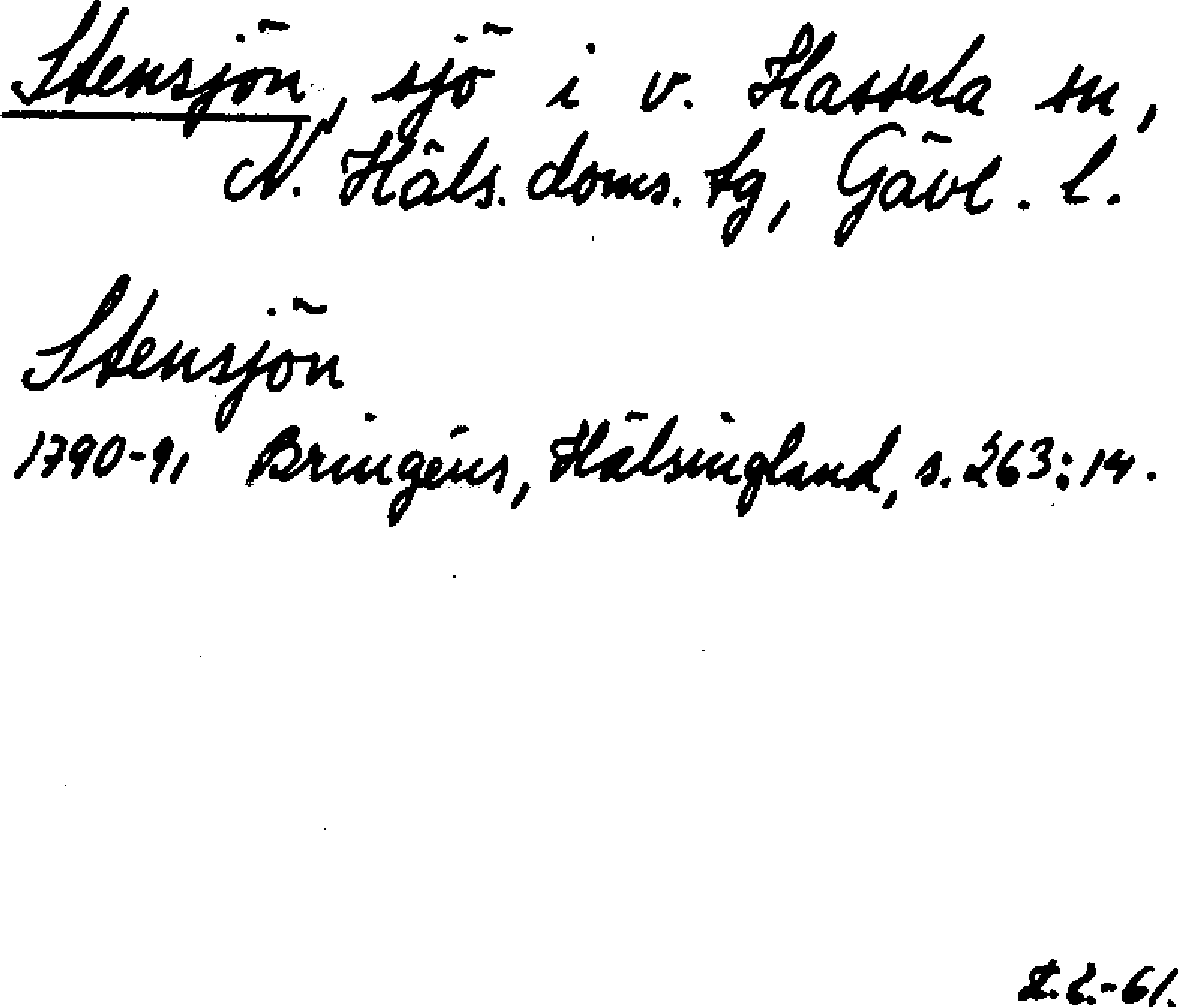 Stensjön, sjö i v. Hassela sn,
N. Häls. doms. tg, Gävl. l.
Stensjön
1790-91 Bringéus, Hälsingland, s. 263:14.
L.L.-61.